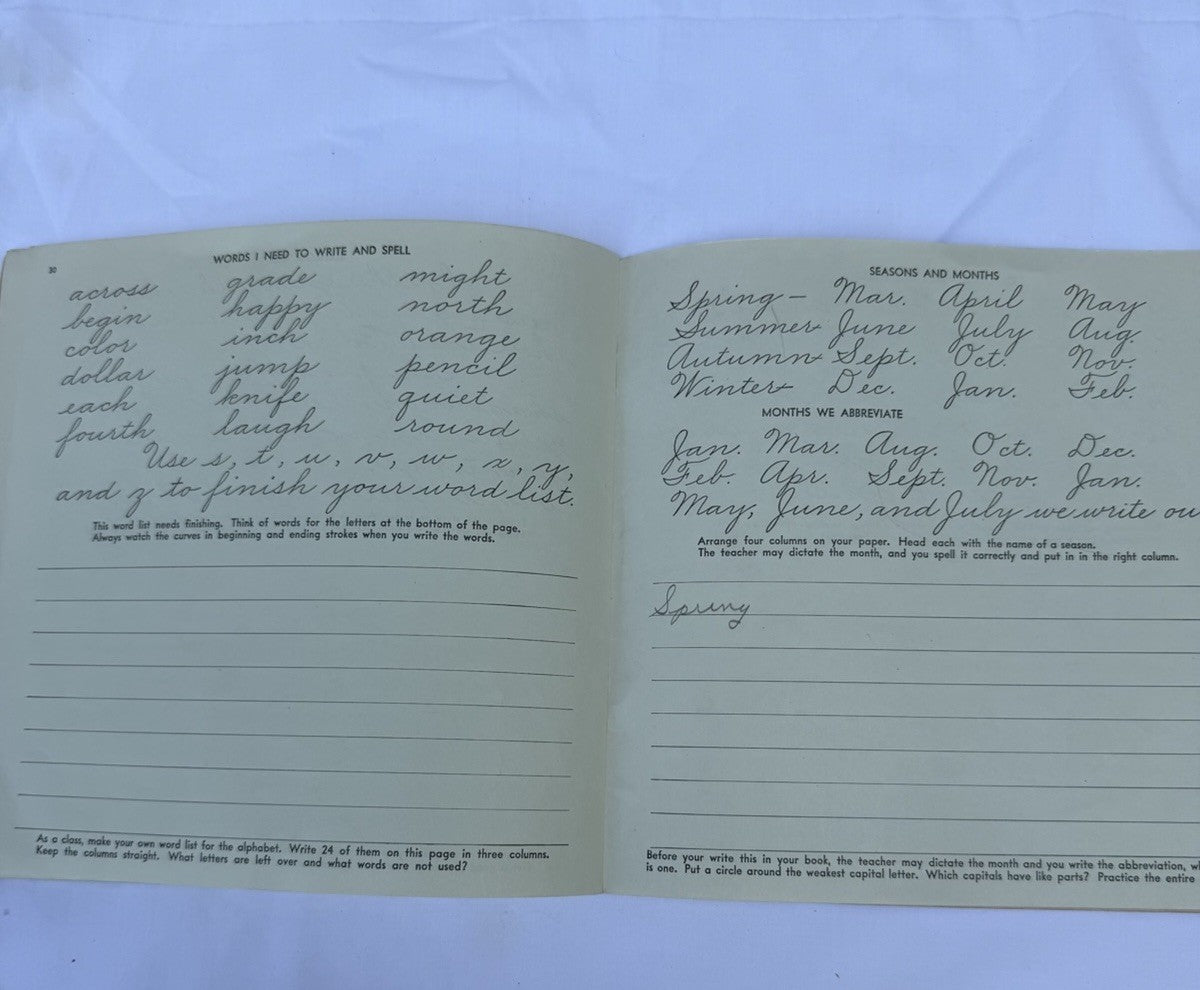 30
WORDS I NEED TO WRITE AND SPELL
across grade might
begin happy north
color inch orange
dollar jump pencil
each knife quiet
fourth laugh round
Use s, t, u, v, w, x, y,
and z to finish your word list.
This word list needs finishing. Think of words for the letters at the bottom of the page.
Always watch the curves in beginning and ending strokes when you write the words.
As a class, make your own word list for the alphabet. Write 24 of them on this page in three columns.
Keep the columns straight. What letters are left over and what words are not used?
SEASONS AND MONTHS
Spring – Mar. April May
Summer– June July Aug.
Autumn– Sept. Oct. Nov.
Winter– Dec. Jan. Feb.
MONTHS WE ABBREVIATE
Jan. Mar. Aug. Oct. Dec.
Feb. Apr. Sept. Nov. Jan.
May, June, and July we write ou
Arrange four columns on your paper. Head each with the name of a season.
The teacher may dictate the month, and you spell it correctly and put in in the right column.
Spring
Before your write this in your book, the teacher may dictate the month and you write the abbreviation, w
is one. Put a circle around the weakest capital letter. Which capitals have like parts? Practice the entire